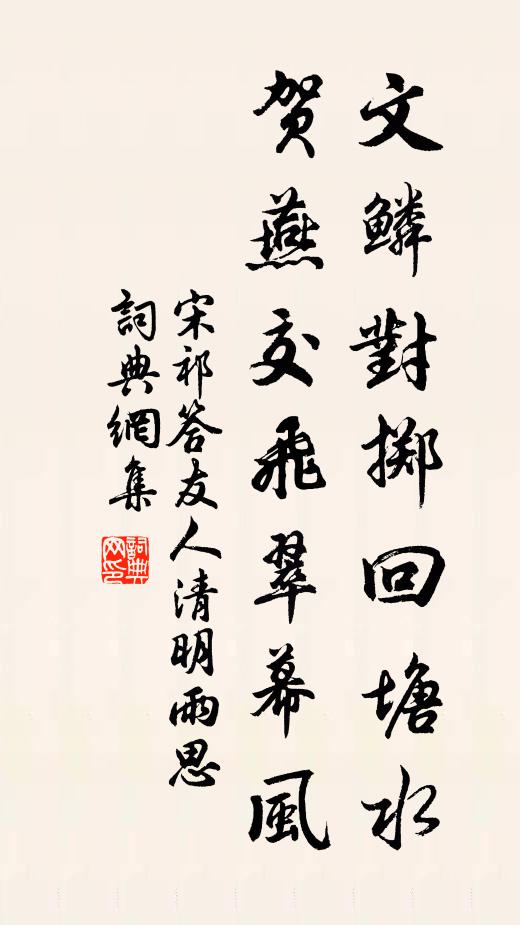 文鱗對掷回塘水
贺燕交飛翠幕風
宋祁答友人清明雨思
詞典網集
詞典网印